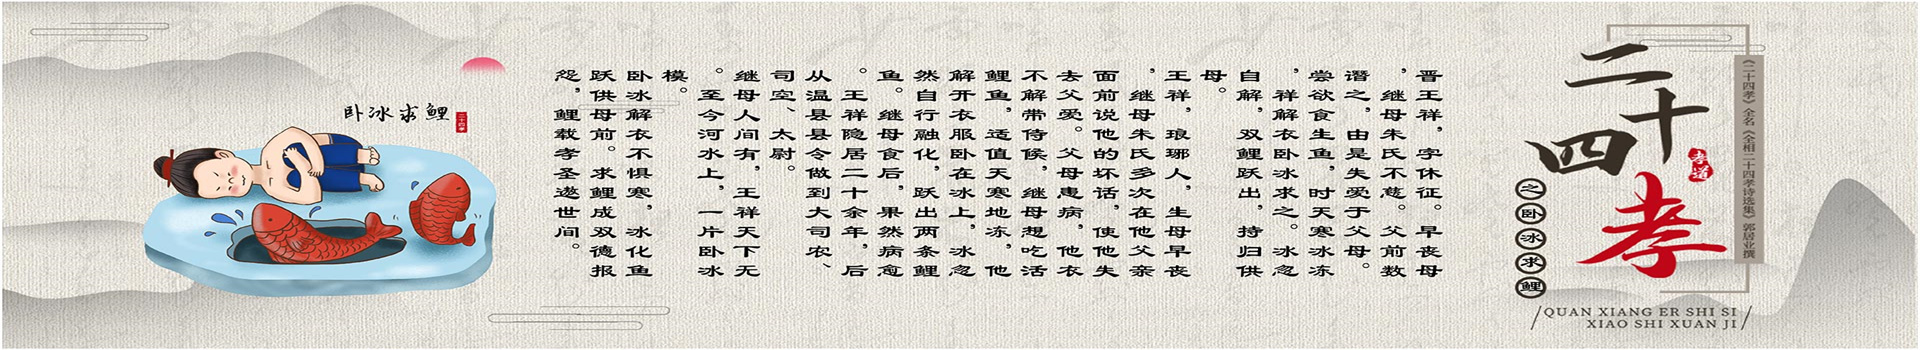 《二十四孝》全名《全相二十四孝诗选集》郭居业撰
二十四
孝
孝道
之卧冰求鲤
QUAN XIANG ER SHI SI
XIAO SHI XUAN JI
晋王祥，字休征。早丧母
，继母朱氏不慈。父前数
谮之，由是失爱于父母。
尝欲食生鱼，时天寒冰冻
，祥解衣卧冰求之。冰忽
自解，双鲤跃出，持归供
母。
王祥，琅琊人，生母早丧
，继母朱氏多次在他父亲
面前说他的坏话，使他失
去父爱。父母患病，他衣
不解带侍候，继母想吃活
鲤鱼，适值天寒地冻，他
解开衣服卧在冰上，冰忽
然自行融化，跃出两条鲤
鱼。继母食后，果然病愈
。王祥隐居二十余年，后
从温县县令做到大司农、
司空、太尉。
继母人间有，王祥天下无
。至今河水上，一片卧冰
模。
卧冰解衣不惧寒，冰化鱼
跃供母前。求鲤成双德报
怨，鲤载孝圣遨世间。
卧冰求鲤
二十四孝